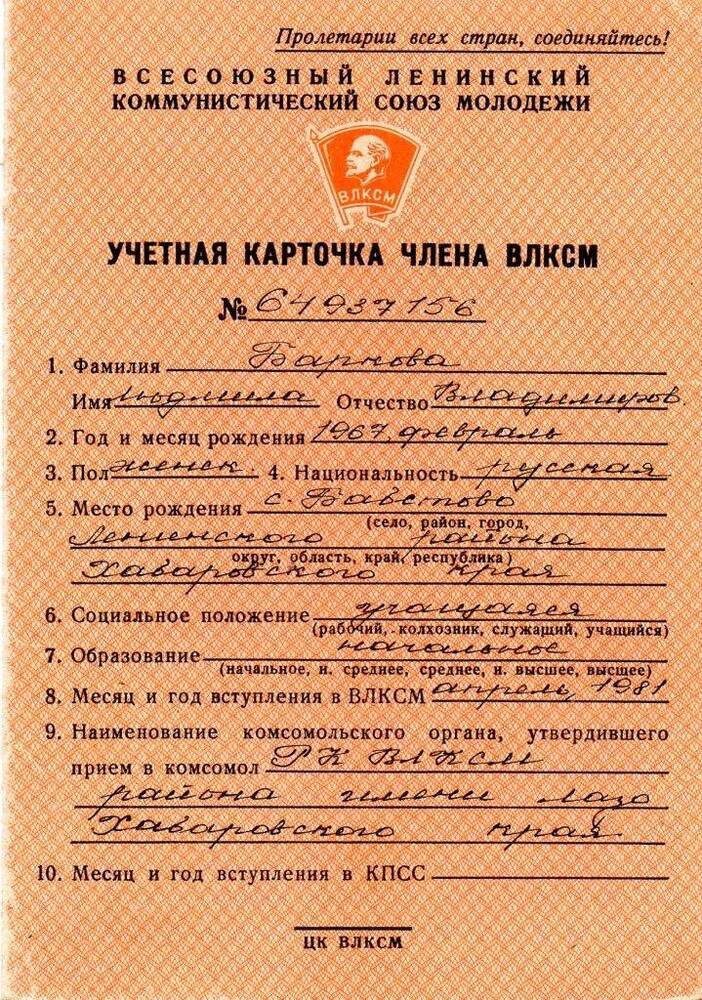 Пролетарии всех стран, соединяйтесь!
ВСЕСОЮЗНЫЙ ЛЕНИНСКИЙ
КОММУНИСТИЧЕСКИЙ СОЮЗ МОЛОДЕЖИ
ВЛКСМ
УЧЕТНАЯ КАРТОЧКА ЧЛЕНА ВЛКСМ
№ 64937156
1. Фамилия Баркова
Имя Людмила Отчество Владимиров.
2. Год и месяц рождения 1967, февраль
3. Пол женск. 4. Национальность русская
5. Место рождения с. Бабстово
(село, район, город,
Ленинского района
округ, область, край, республика)
Хабаровского края
6. Социальное положение учащаяся
(рабочий, колхозник, служащий, учащийся)
7. Образование начальное
(начальное, н. среднее, среднее, н. высшее, высшее)
8. Месяц и год вступления в ВЛКСМ апрель, 1981
9. Наименование комсомольского органа, утвердившего
прием в комсомол РК ВЛКСМ
района имени Лазо
Хабаровского края
10. Месяц и год вступления в КПСС
ЦК ВЛКСМ